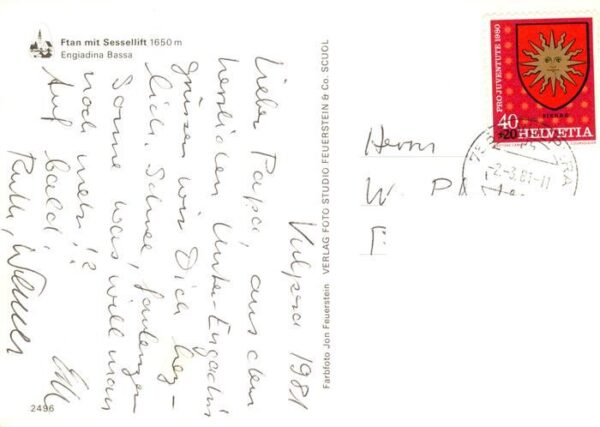 Ftan mit Sessellift 1650 m
Engiadina Bassa
Vulpera 1981
Lieber Papa, aus dem
herrlichen Unter-Engadin
grüssen wir Dich herz-
lich. Schnee,
Sonne was will man
noch mehr!?
Auf bald!
Ruth, Werner
2496
Farbfoto Jon Feuerstein VERLAG FOTO STUDIO FEUERSTEIN & CO. SCUOL
PRO JUVENTUTE 1980
40
+20 HELVETIA
-2.-3.81-11
Herrn
W.